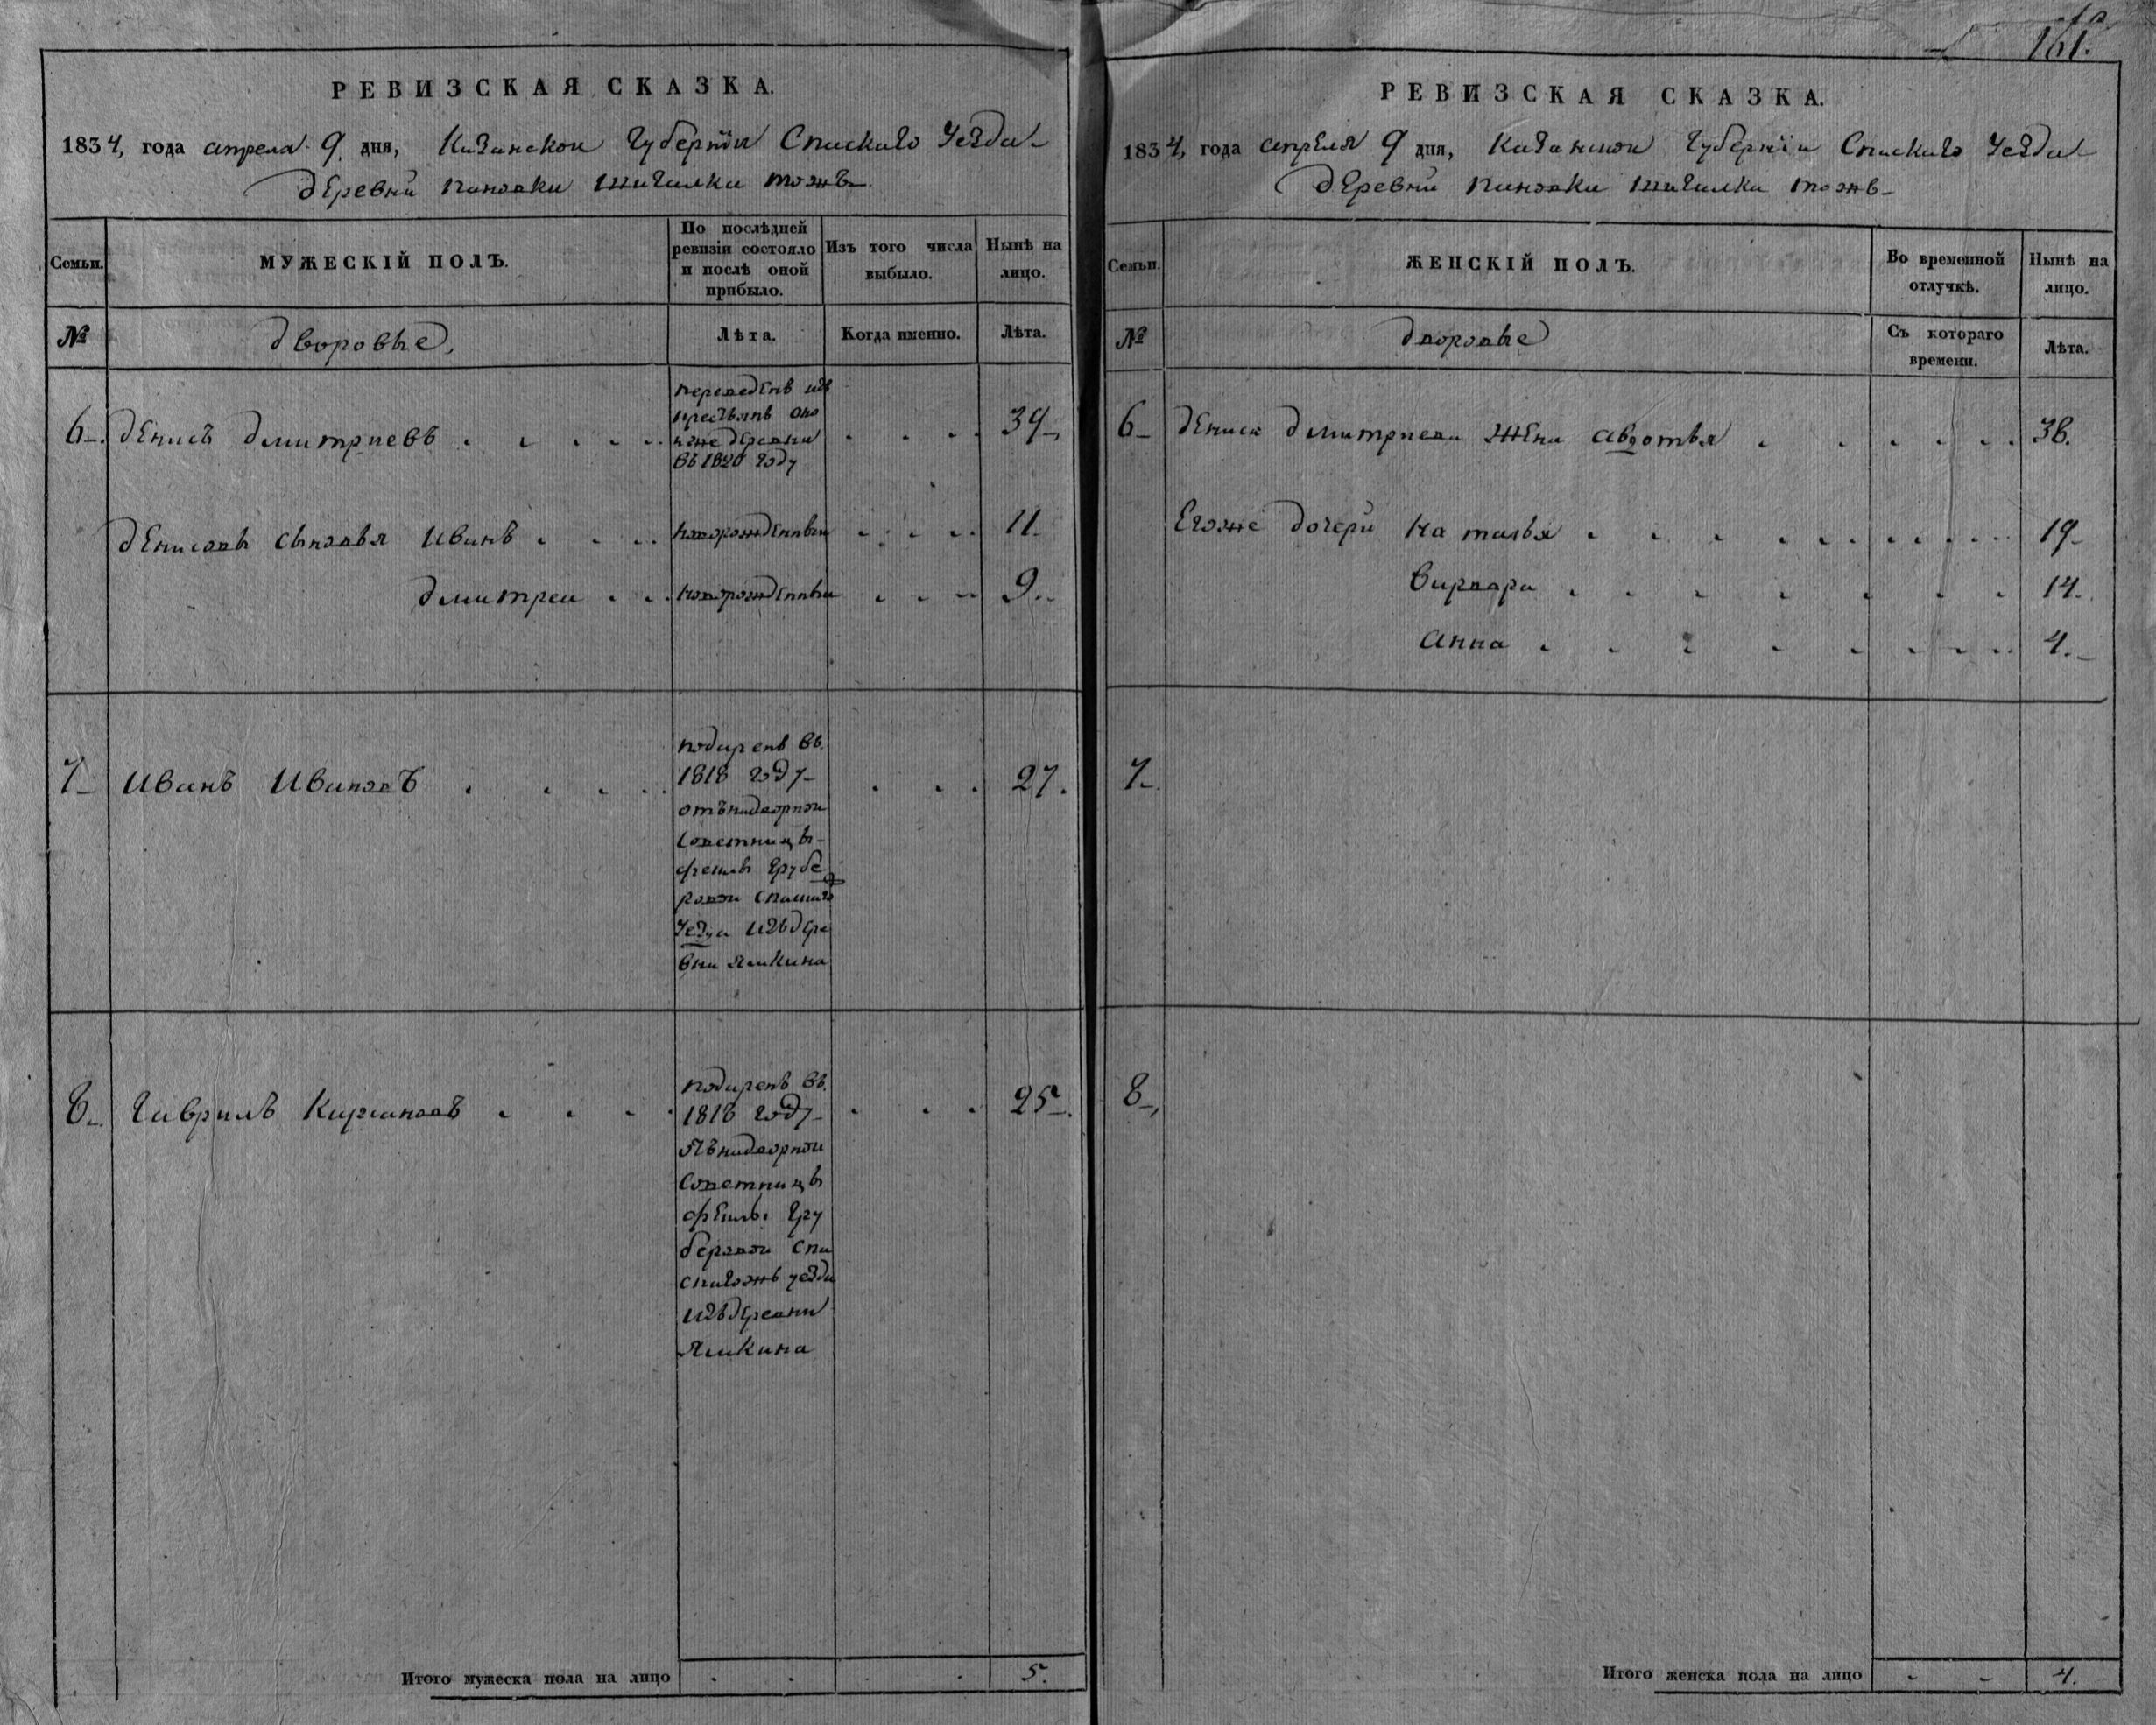 161.
РЕВИЗСКАЯ СКАЗКА.
1834, года апреля 9 дня, Казанской Губернïи Спаскаго Уезда
деревни пановки тожъ
Семьи.
МУЖЕСКІЙ ПОЛЪ.
По послѣдней ревизіи состояло и послѣ оной прибыло.
Изъ того числа выбыло.
Нынѣ на лицо.
№
дворовые,
Лѣта.
Когда именно.
Лѣта.
6. денисъ дмитриевъ
переведенъ изъ
крестьянъ оно
й же деревни
въ 1820 году
39
денисовы сыновья иванъ новорожденный 11.
дмитреи новорожденный 9.
7 иванъ ивановъ
подаренъ въ
1818 году
отънадворной
советницы
феклы грубе
ровой спаскаго
уезда изъдере
вни ямкина
27.
8 гаврилъ
подаренъ въ
1818 году
отънадворной
советницы
феклы гру
беровой спа
скагожъ уезда
изъдеревни
ямкина
25.
Итого мужеска пола на лицо 5.
РЕВИЗСКАЯ СКАЗКА.
1834, года апреля 9 дня, Казанской Губернïи Спаскаго Уезда
деревни пановки тожъ
Семьи.
ЖЕНСКІЙ ПОЛЪ.
Во временной отлучкѣ.
Нынѣ на лицо.
№
дворовые
Съ котораго времени.
Лѣта.
6 дениса дмитриева жена авдотья 38.
Егоже дочери наталья 19
варвара 14.
анна 4.
7
8
Итого женска пола на лицо 4.